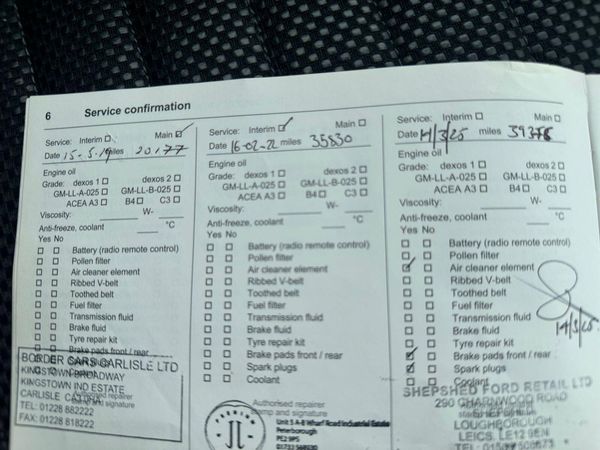 6 Service confirmation
Service: Interim Main
Date 15-5-19 miles 20177
Engine oil
Grade: dexos 1 dexos 2
GM-LL-A-025 GM-LL-B-025
ACEA A3 B4 C3
Viscosity: W-
Anti-freeze, coolant °C
Yes No
Battery (radio remote control)
Pollen filter
Air cleaner element
Ribbed V-belt
Toothed belt
Fuel filter
Transmission fluid
Brake fluid
Tyre repair kit
Brake pads front / rear
BORDER CARS CARLISLE LTD
KINGSTOWN BROADWAY
KINGSTOWN IND ESTATE
CARLISLE
stamp and signature
TEL: 01228 882222
FAX: 01228 818222
Service: Interim Main
Date 16-02-22 miles 35830
Engine oil
Grade: dexos 1 dexos 2
GM-LL-A-025 GM-LL-B-025
ACEA A3 B4 C3
Viscosity: W-
Anti-freeze, coolant °C
Yes No
Battery (radio remote control)
Pollen filter
Air cleaner element
Ribbed V-belt
Toothed belt
Fuel filter
Transmission fluid
Brake fluid
Tyre repair kit
Brake pads front / rear
Spark plugs
Coolant
Authorised repairer
stamp and signature
Unit 5 A-B Wharf Road Industrial Estate
Peterborough
PE2 9PS
Service: Interim Main
Date 14/3/25 miles
Engine oil
Grade: dexos 1 dexos 2
GM-LL-A-025 GM-LL-B-025
ACEA A3 B4 C3
Viscosity: W-
Anti-freeze, coolant °C
Yes No
Battery (radio remote control)
Pollen filter
Air cleaner element
Ribbed V-belt
Toothed belt
Fuel filter
Transmission fluid
Brake fluid
14/3/25
Tyre repair kit
Brake pads front / rear
Spark plugs
Coolant
SHEPSHED FORD RETAIL LTD
290 CHARNWOOD ROAD
SHEPSHED
LOUGHBOROUGH
LEICS. LE12 9EN